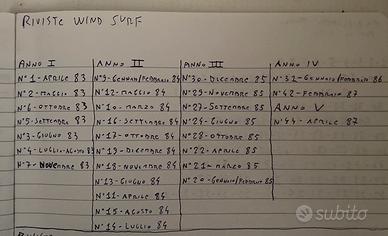 RIVISTE WIND SURF
ANNO I
N°1 - APRILE 83
N°2 - MAGGIO 83
N°6 - OTTOBRE 83
N°5 - SETTEMBRE 83
N°3 - GIUGNO 83
N°4 - LUGLIO-AGOSTO 83
N°7 - NOVEMBRE 83
ANNO II
N°9 - GENNAI/FEBBRAIO 84
N°12 - MAGGIO 84
N°10 - MARZO 84
N°16 - SETTEMBRE 84
N°17 - OTTOBRE 84
N°19 - DICEMBRE 84
N°18 - NOVEMBRE 84
N°13 - GIUGNO 84
N°11 - APRILE 84
N°15 - AGOSTO 84
N°14 - LUGLIO 84
ANNO III
N°30 - DICEMBRE 85
N°29 - NOVEMBRE 85
N°27 - SETTEMBRE 85
N°24 - GIUGNO 85
N°28 - OTTOBRE 85
N°22 - APRILE 85
N°21 - MARZO 85
N°20 - GENNAIO/FEBBRAIO 85
ANNO IV
N°32 - GENNAIO/FEBBRAIO 86
N°42 - FEBBRAIO 87
ANNO V
N°44 - APRILE 87
subito